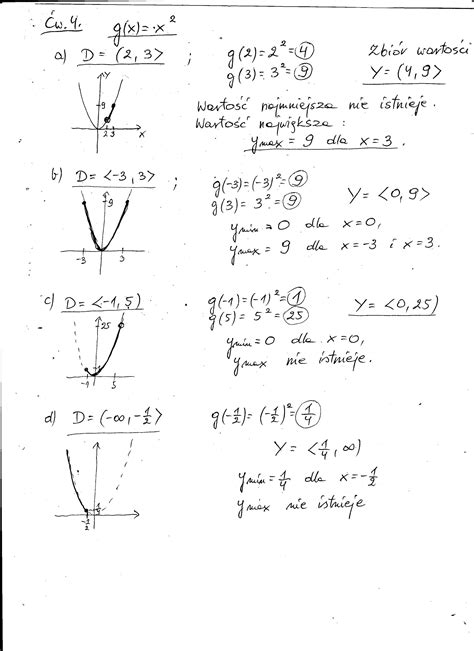 Ćw. 4. g(x) = x²
a) D = (2, 3> ; g(2) = 2² = 4 Zbiór wartości
g(3) = 3² = 9 Y = (4, 9>
Y
9
2 3 X
Wartość najmniejsza nie istnieje.
Wartość największa :
ymax = 9 dla x = 3.
b) D = <-3, 3> ; g(-3) = (-3)² = 9 Y = <0, 9>
g(3) = 3² = 9
9
-3 3
ymin = 0 dla x = 0,
ymax = 9 dla x = -3 i x = 3.
c) D = <-1, 5) g(-1) = (-1)² = 1 Y = <0, 25)
g(5) = 5² = 25
25
1
-1 5
ymin = 0 dla x = 0,
ymax nie istnieje.
d) D = (-∞, -1/2> g(-1/2) = (-1/2)² = 1/4
Y = <1/4, ∞)
ymin = 1/4 dla x = -1/2
ymax nie istnieje
1/4
-1/2